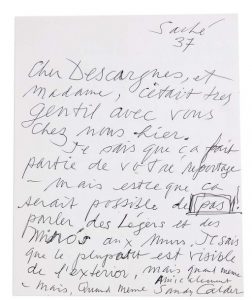 Saché
37
Cher Descargues, et
madame, c'était très
gentil avec vous
chez nous hier.
Je sais que ça fait
partie de votre reportage
– mais estce que ça
serait possible de pas
parler des Légers et des
Mirós aux murs. Je sais
que le plupart est visible
de l'exterior, mais quand même
Amicalement
– mais, Quand même Sandy Calder